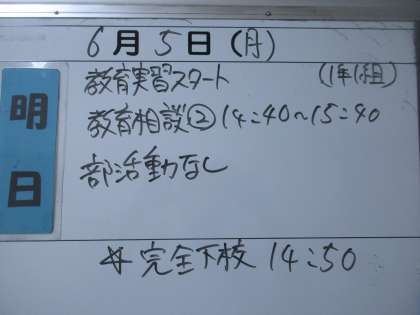 6月5日(月)
明日
教育実習スタート (1年1組)
教育相談② 14:40~15:40
部活動なし
☆完全下校 14:50